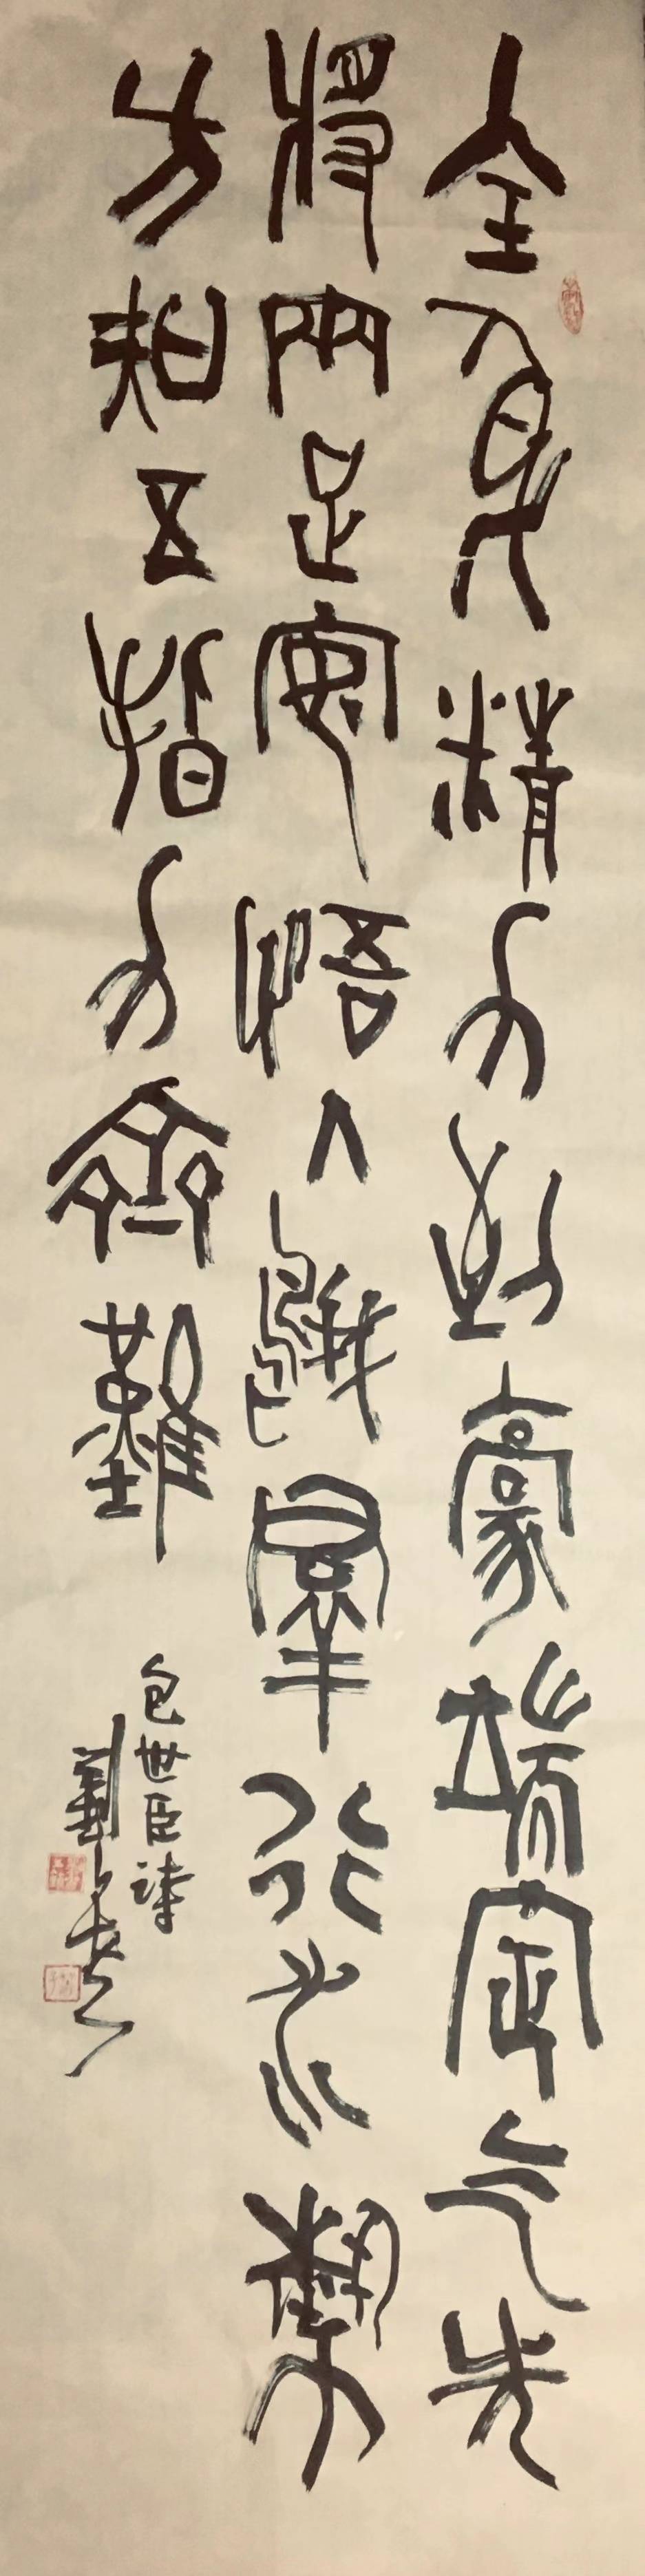 全身精力到豪端定气先
將兩足安悟入鵝羣行水勢
方知五指力齊難
包世臣詩